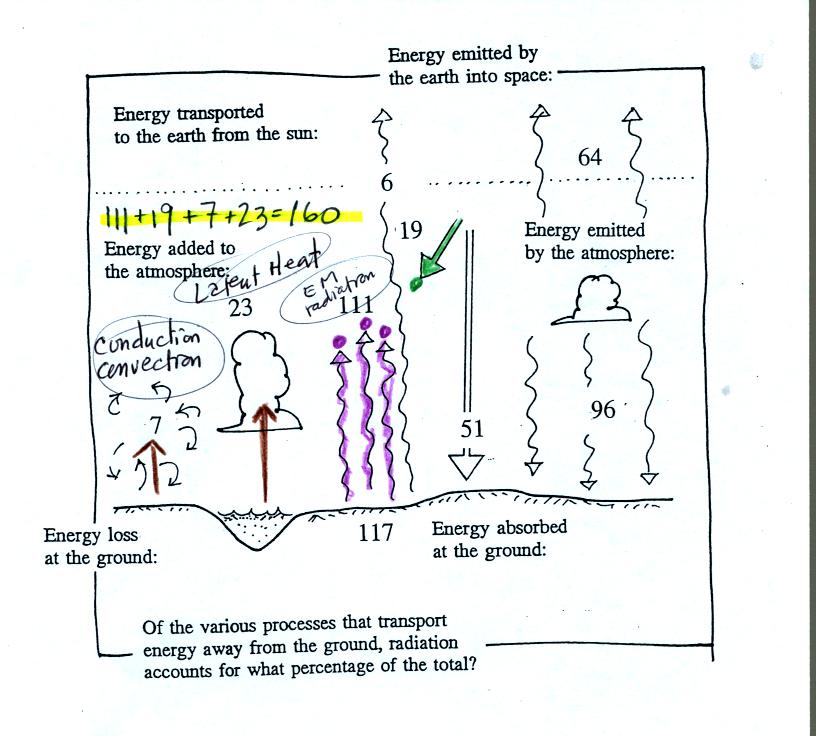 Energy emitted by
the earth into space:
Energy transported
to the earth from the sun:
64
6
111+19+7+23=160
19
Energy added to
the atmosphere:
Energy emitted
by the atmosphere:
Latent Heat
23
EM
radiation
111
Conduction
Convection
7
51
96
Energy loss
at the ground:
117
Energy absorbed
at the ground:
Of the various processes that transport
energy away from the ground, radiation
accounts for what percentage of the total?